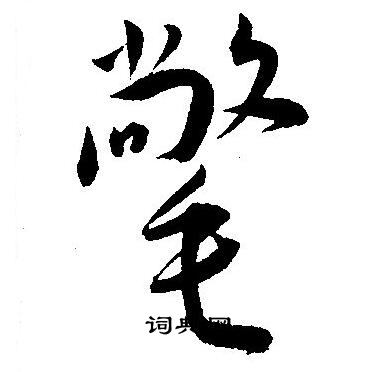 氅
词典网